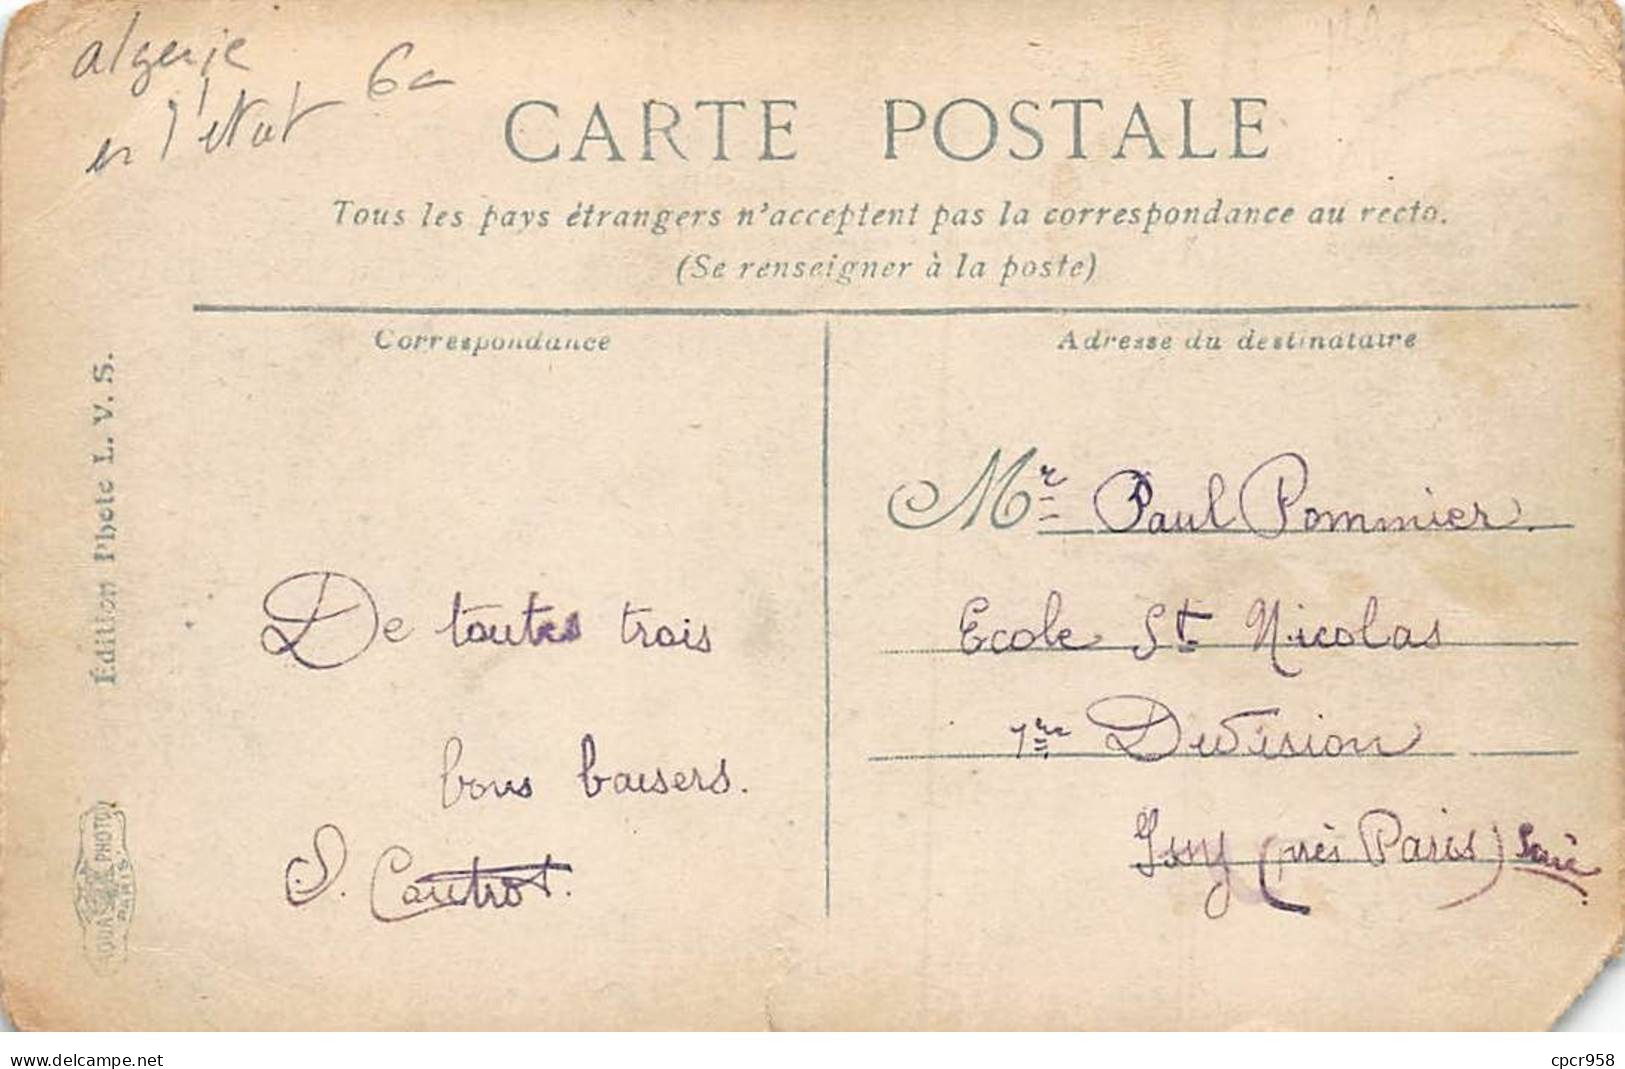 algerie
en l'état 6
CARTE POSTALE
Tous les pays étrangers n'acceptent pas la correspondance au recto.
(Se renseigner à la poste)
Correspondance
Adresse du destinataire
Édition Photo L. V. S.
PHOTO
PARIS
De toutes trois
bons baisers.
S. Cautrot.
Mr Paul Pommier.
Ecole St Nicolas
1re Division
Issy (près Paris) Seine
www.delcampe.net
cpcr958